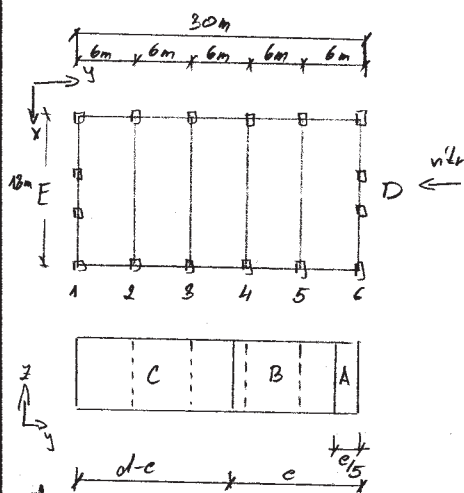 30m
6m 6m 6m 6m 6m
y
x
18m E D vítr
1 2 3 4 5 6
z
C B A
y
e/5
d-e e